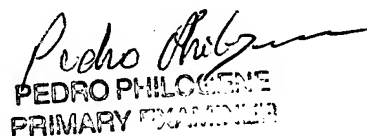 Pedro Philogene
PEDRO PHILOGENE
PRIMARY EXAMINER